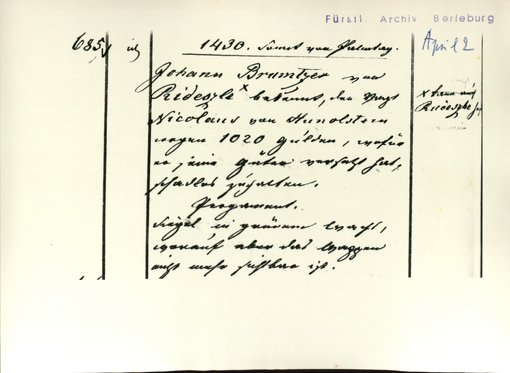 Fürstl. Archiv Berleburg
685
1430. Sonnt. vor Palmtag.
April 2
Johann Bruntzer von
Rideszle x bekennt, den Vogt
Nicolaus von Hunolstein
wegen 1020 gülden, wofür
er seine Güter versetzt hat,
schadlos zu halten.
Pergament.
Siegel in grünem Wachs,
worauf aber das Wappen
nicht mehr sichtbar ist.
x kann auch
Rudeszhe